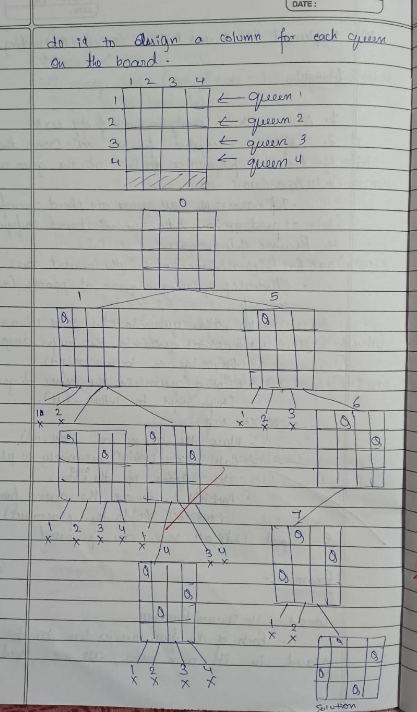 DATE :
do is to design a column for each queen
on the board.
1 2 3 4
1 ← queen 1
2 ← queen 2
3 ← queen 3
4 ← queen 4
0
1 5
Q Q
2 1 2 3 6
x x x x x Q
Q Q Q
Q Q
1 2 3 4 1 3 4 7
x x x x x x x Q
4 Q
Q Q
Q
Q 1 2
x x
1 2 3 4 Q
x x x x Q
Q
Q
Solution